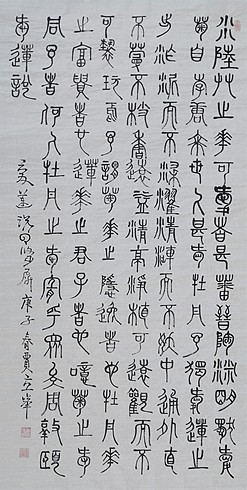 水陸艸木之華可愛者甚蕃晉陶淵明獨愛
菊自李唐來世人甚愛牡丹予獨愛蓮之
出淤泥而不染濯清漣而不妖中通外直
不蔓不枝香遠益清亭亭淨植可遠觀而不
可褻玩焉予謂菊華之隱逸者也牡丹華
之富貴者也蓮華之君子者也噫菊之愛
同予者何人牡丹之愛宜乎眾矣周敦頤
愛蓮說
庚子春賈立峯